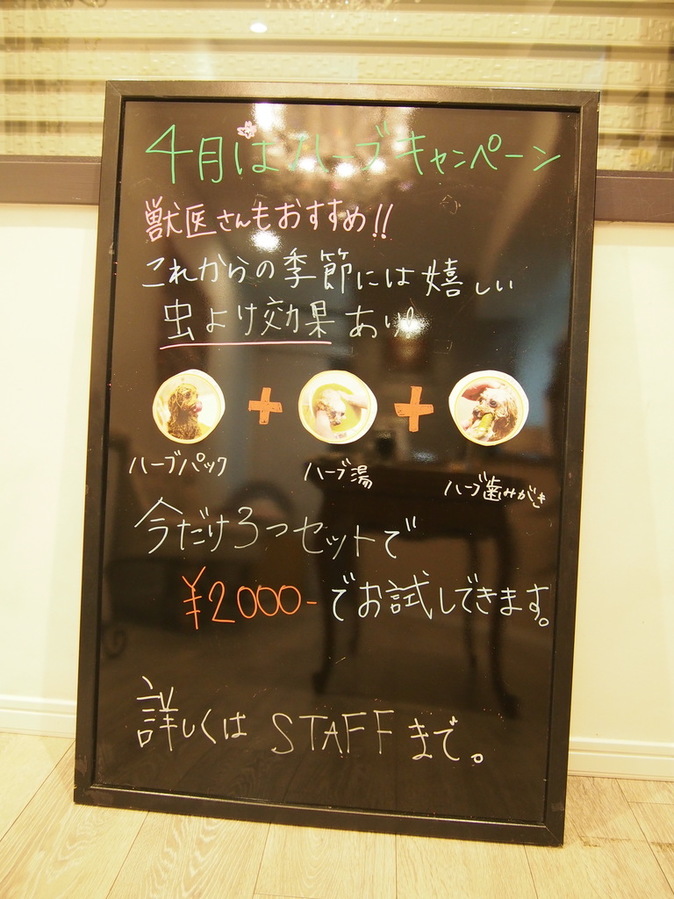 4月はハーブキャンペーン
獣医さんもおすすめ!!
これからの季節には嬉しい
虫よけ効果あり!
ハーブパック + ハーブ湯 + ハーブ歯みがき
今だけ3つセットで
¥2000-でお試しできます。
詳しくはSTAFFまで。